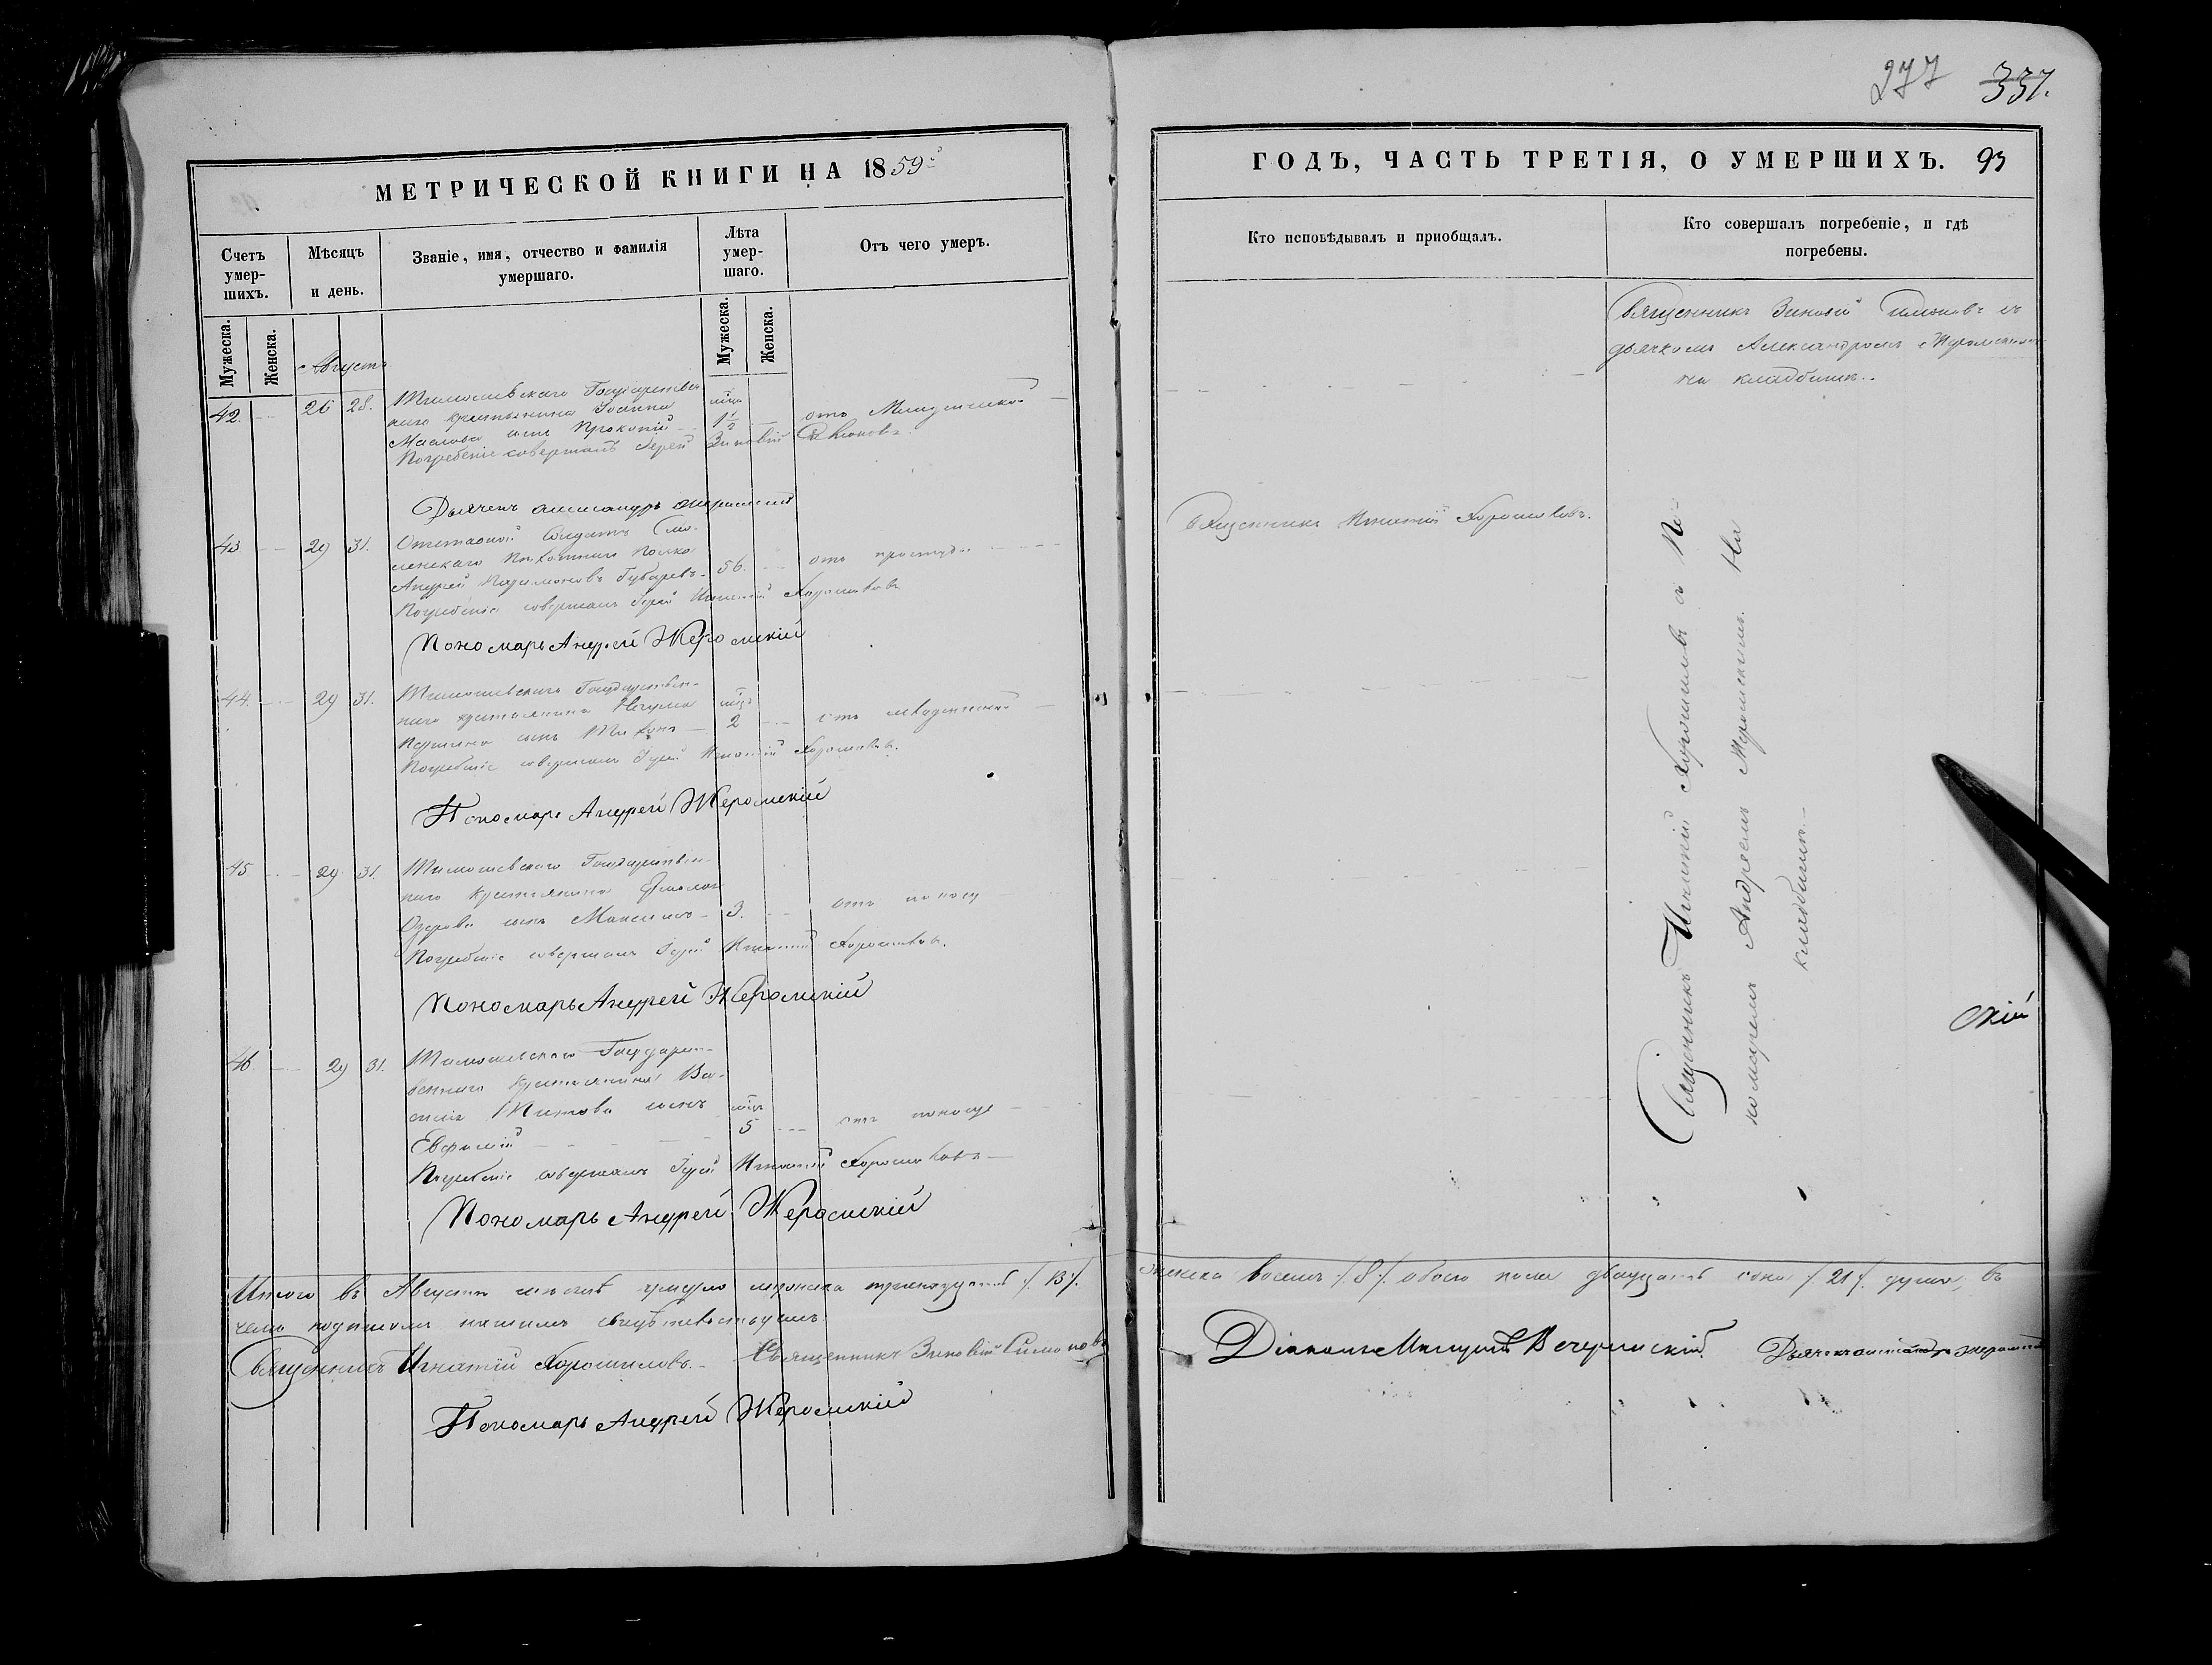 277 337.
МЕТРИЧЕСКОЙ КНИГИ НА 1859й
ГОДЪ, ЧАСТЬ ТРЕТІЯ, О УМЕРШИХЪ. 93
Счетъ умер-
шихъ.
Мѣсяцъ
и день.
Званіе, имя, отчество и фамилія
умершаго.
Лѣта
умер-
шаго.
Отъ чего умеръ.
Кто исповѣдывалъ и пріобщалъ.
Кто совершалъ погребеніе, и гдѣ
погребены.
Мужеска.
Женска.
Мужеска.
Женска.
Августъ
Священникъ Зиновій Симоновъ съ
дьячкомъ Александромъ Жеромскимъ
на кладбищѣ.
42. 26 28.
Государствен-
наго крестьянина Іоанна
Маслова сынъ Прокопій 1½ отъ
Погребеніе совершалъ Іерей Зиновій Симоновъ.
Дьячекъ Александръ Жеромскій
43 29 31. Отставной Солдатъ Смо-
ленскаго Пѣхотнаго полка
Андрей Губаревъ 56. отъ простуды
Погребеніе совершалъ Іерей Игнатій Хорошиловъ
Священникъ Игнатій Хорошиловъ.
Пономарь Андрей Жеромскій
44. 29 31. Государствен-
наго крестьянина Наума
сынъ Тихонъ 2 отъ младенческой
Погребеніе совершалъ Іерей Игнатій Хорошиловъ.
Пономарь Андрей Жеромскій
45. 29 31. Государствен-
наго крестьянина
Озерова сынъ Максимъ 3. отъ поносу
Погребеніе совершалъ Іерей Игнатій Хорошиловъ.
Пономарь Андрей Жеромскій
46. 29 31. Государст-
веннаго крестьянина Ва-
силія Титова сынъ
Евфимій 5 отъ поноса
Погребеніе совершалъ Іерей Игнатій Хорошиловъ
Пономарь Андрей Жеромскій
Священникъ Игнатій Хорошиловъ съ По-
номаремъ Андреемъ Жеромскимъ. На
кладбищѣ.
скій
Итого въ Августѣ мѣсяцѣ умерло мужеска тринадцать /.13/. женска восемь /.8/. обоего пола двадцать одна /.21/. душа, въ
чемъ подписомъ нашимъ свидѣтельствуемъ.
Священникъ Игнатій Хорошиловъ. Священникъ Зиновій Симоновъ
Діаконъ Вечерискій. Дьячекъ Александръ Жеромскій
Пономарь Андрей Жеромскій